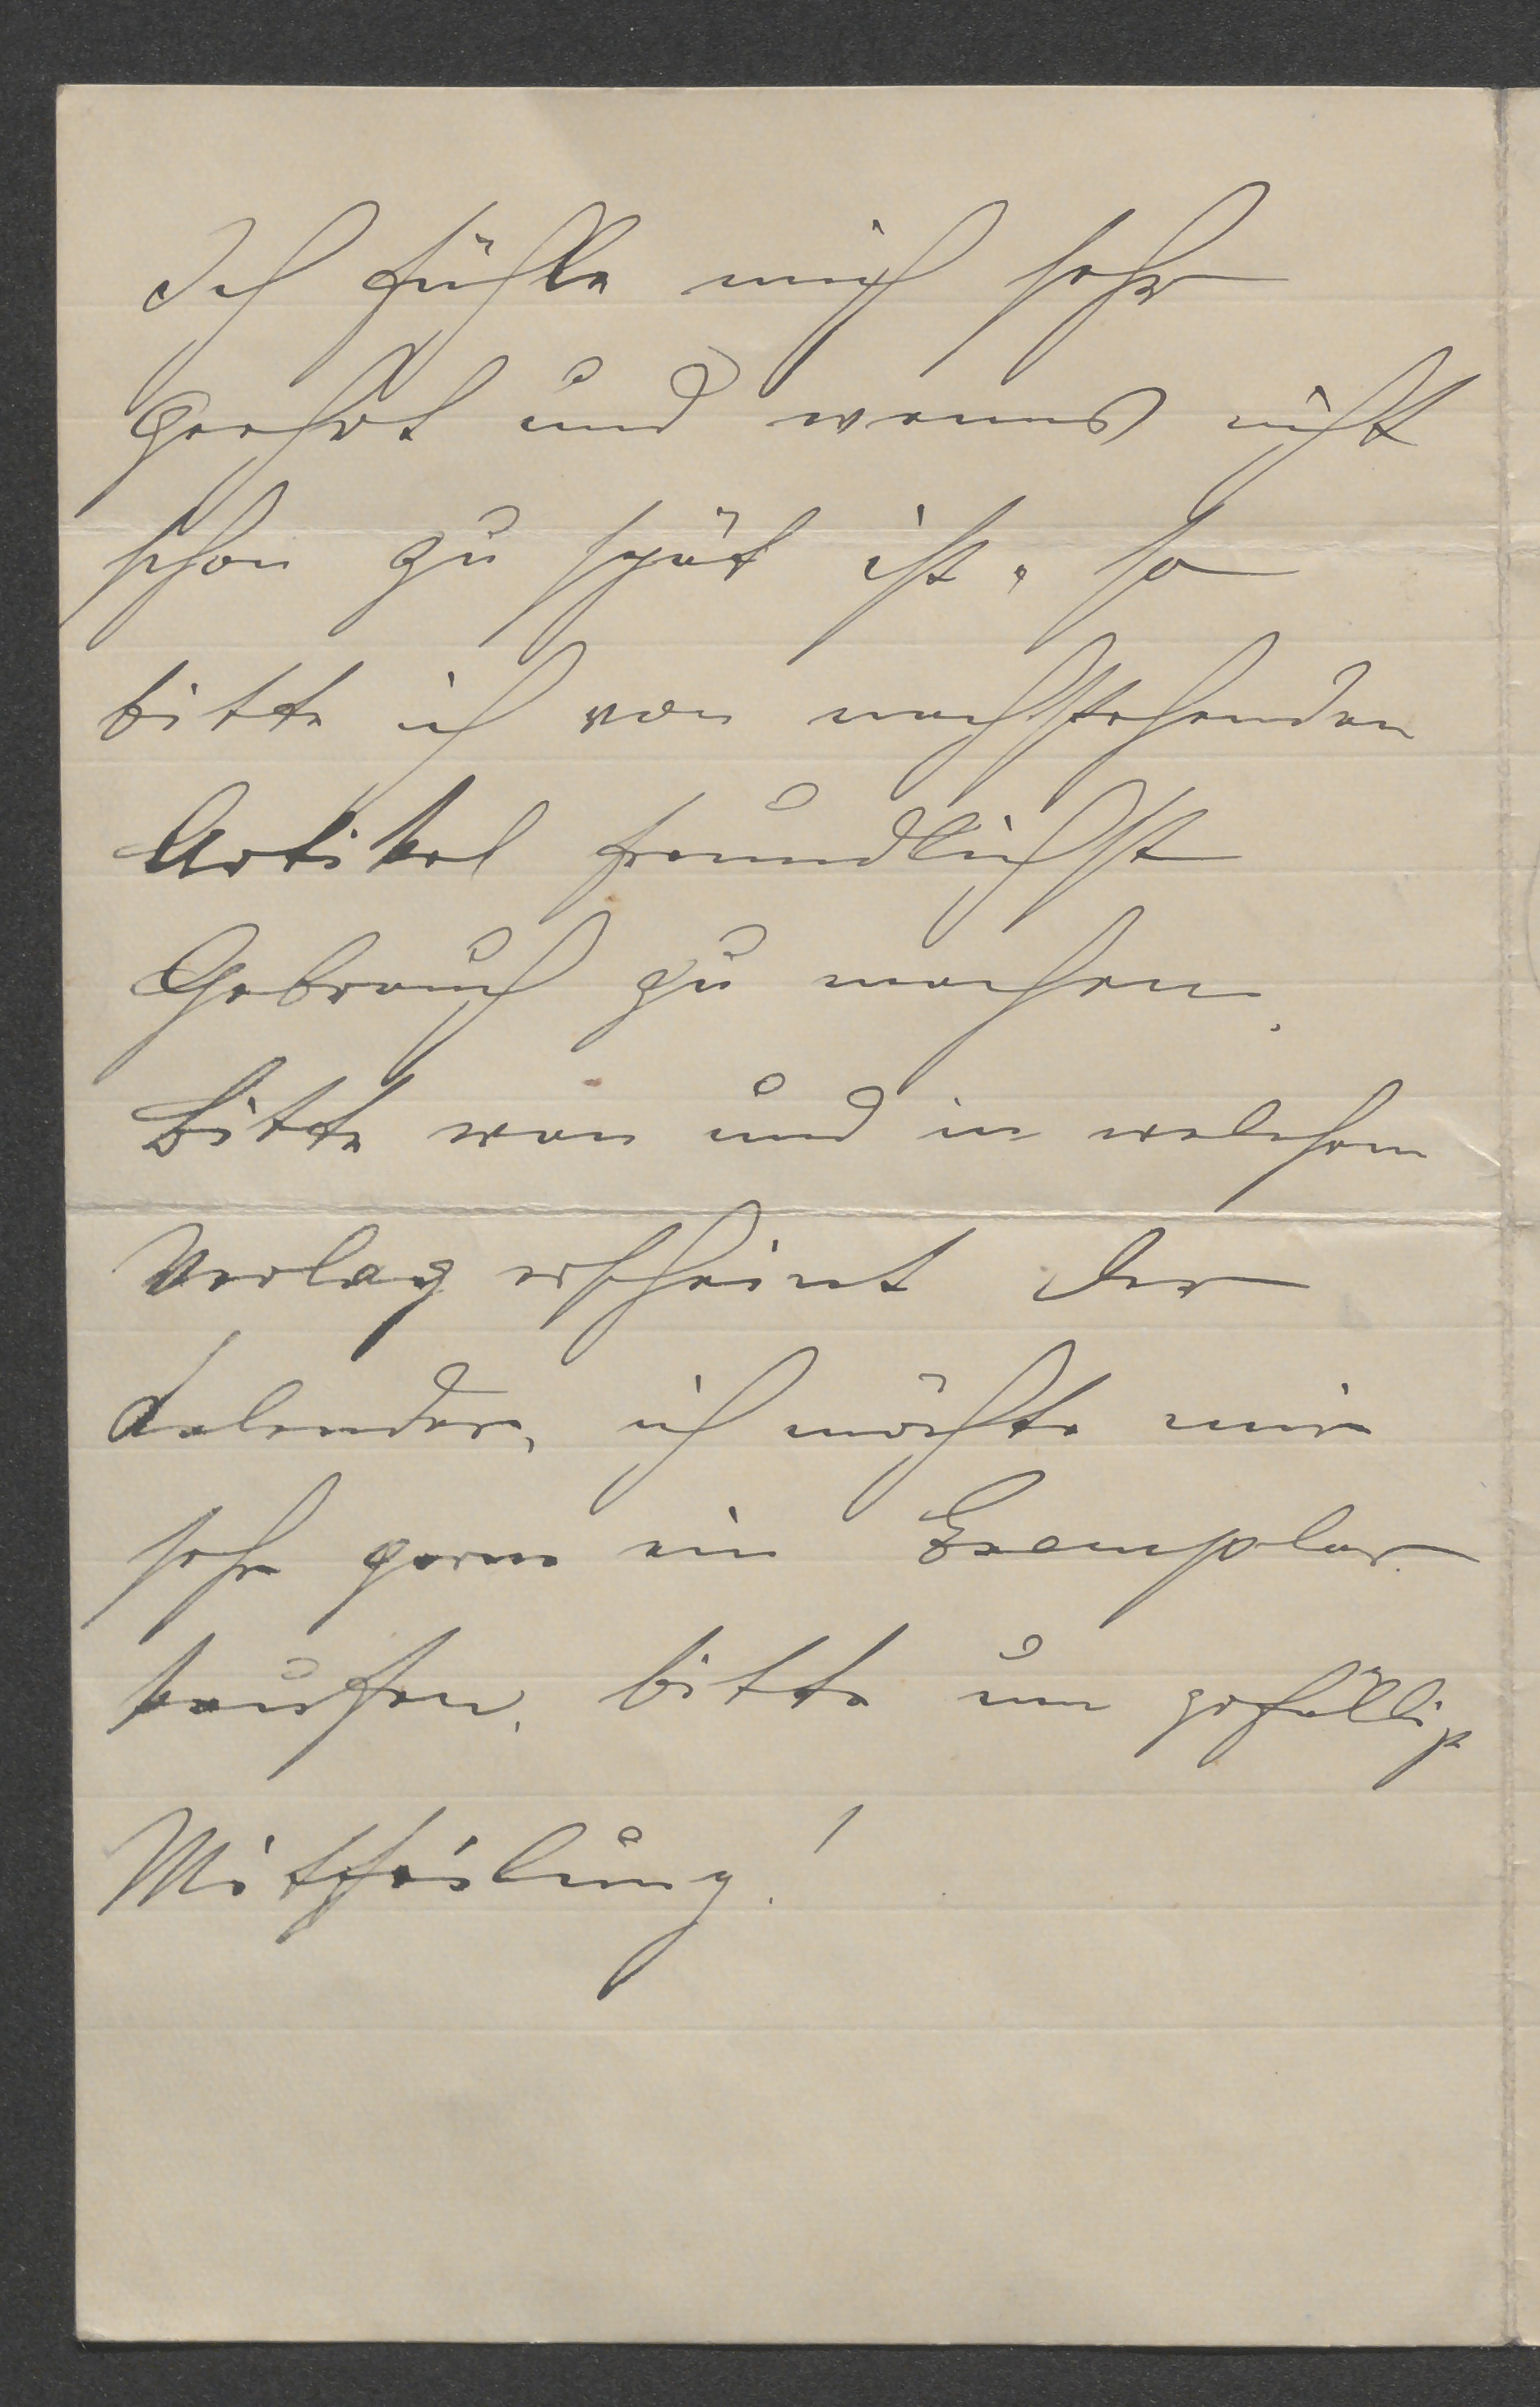 Ich fühle mich sehr
Geehrt und wenns nicht
schon zu spät ist, so
bitte ich von nachstehenden
Artikel freundlichst
Gebrauch zu machen.
Bitte wan und in welchem
Verlag erscheint der
Kalender, ich möchte mir
sehr gerne ein Exemplar
kaufen, bitte um gefällig
Mittheilung!